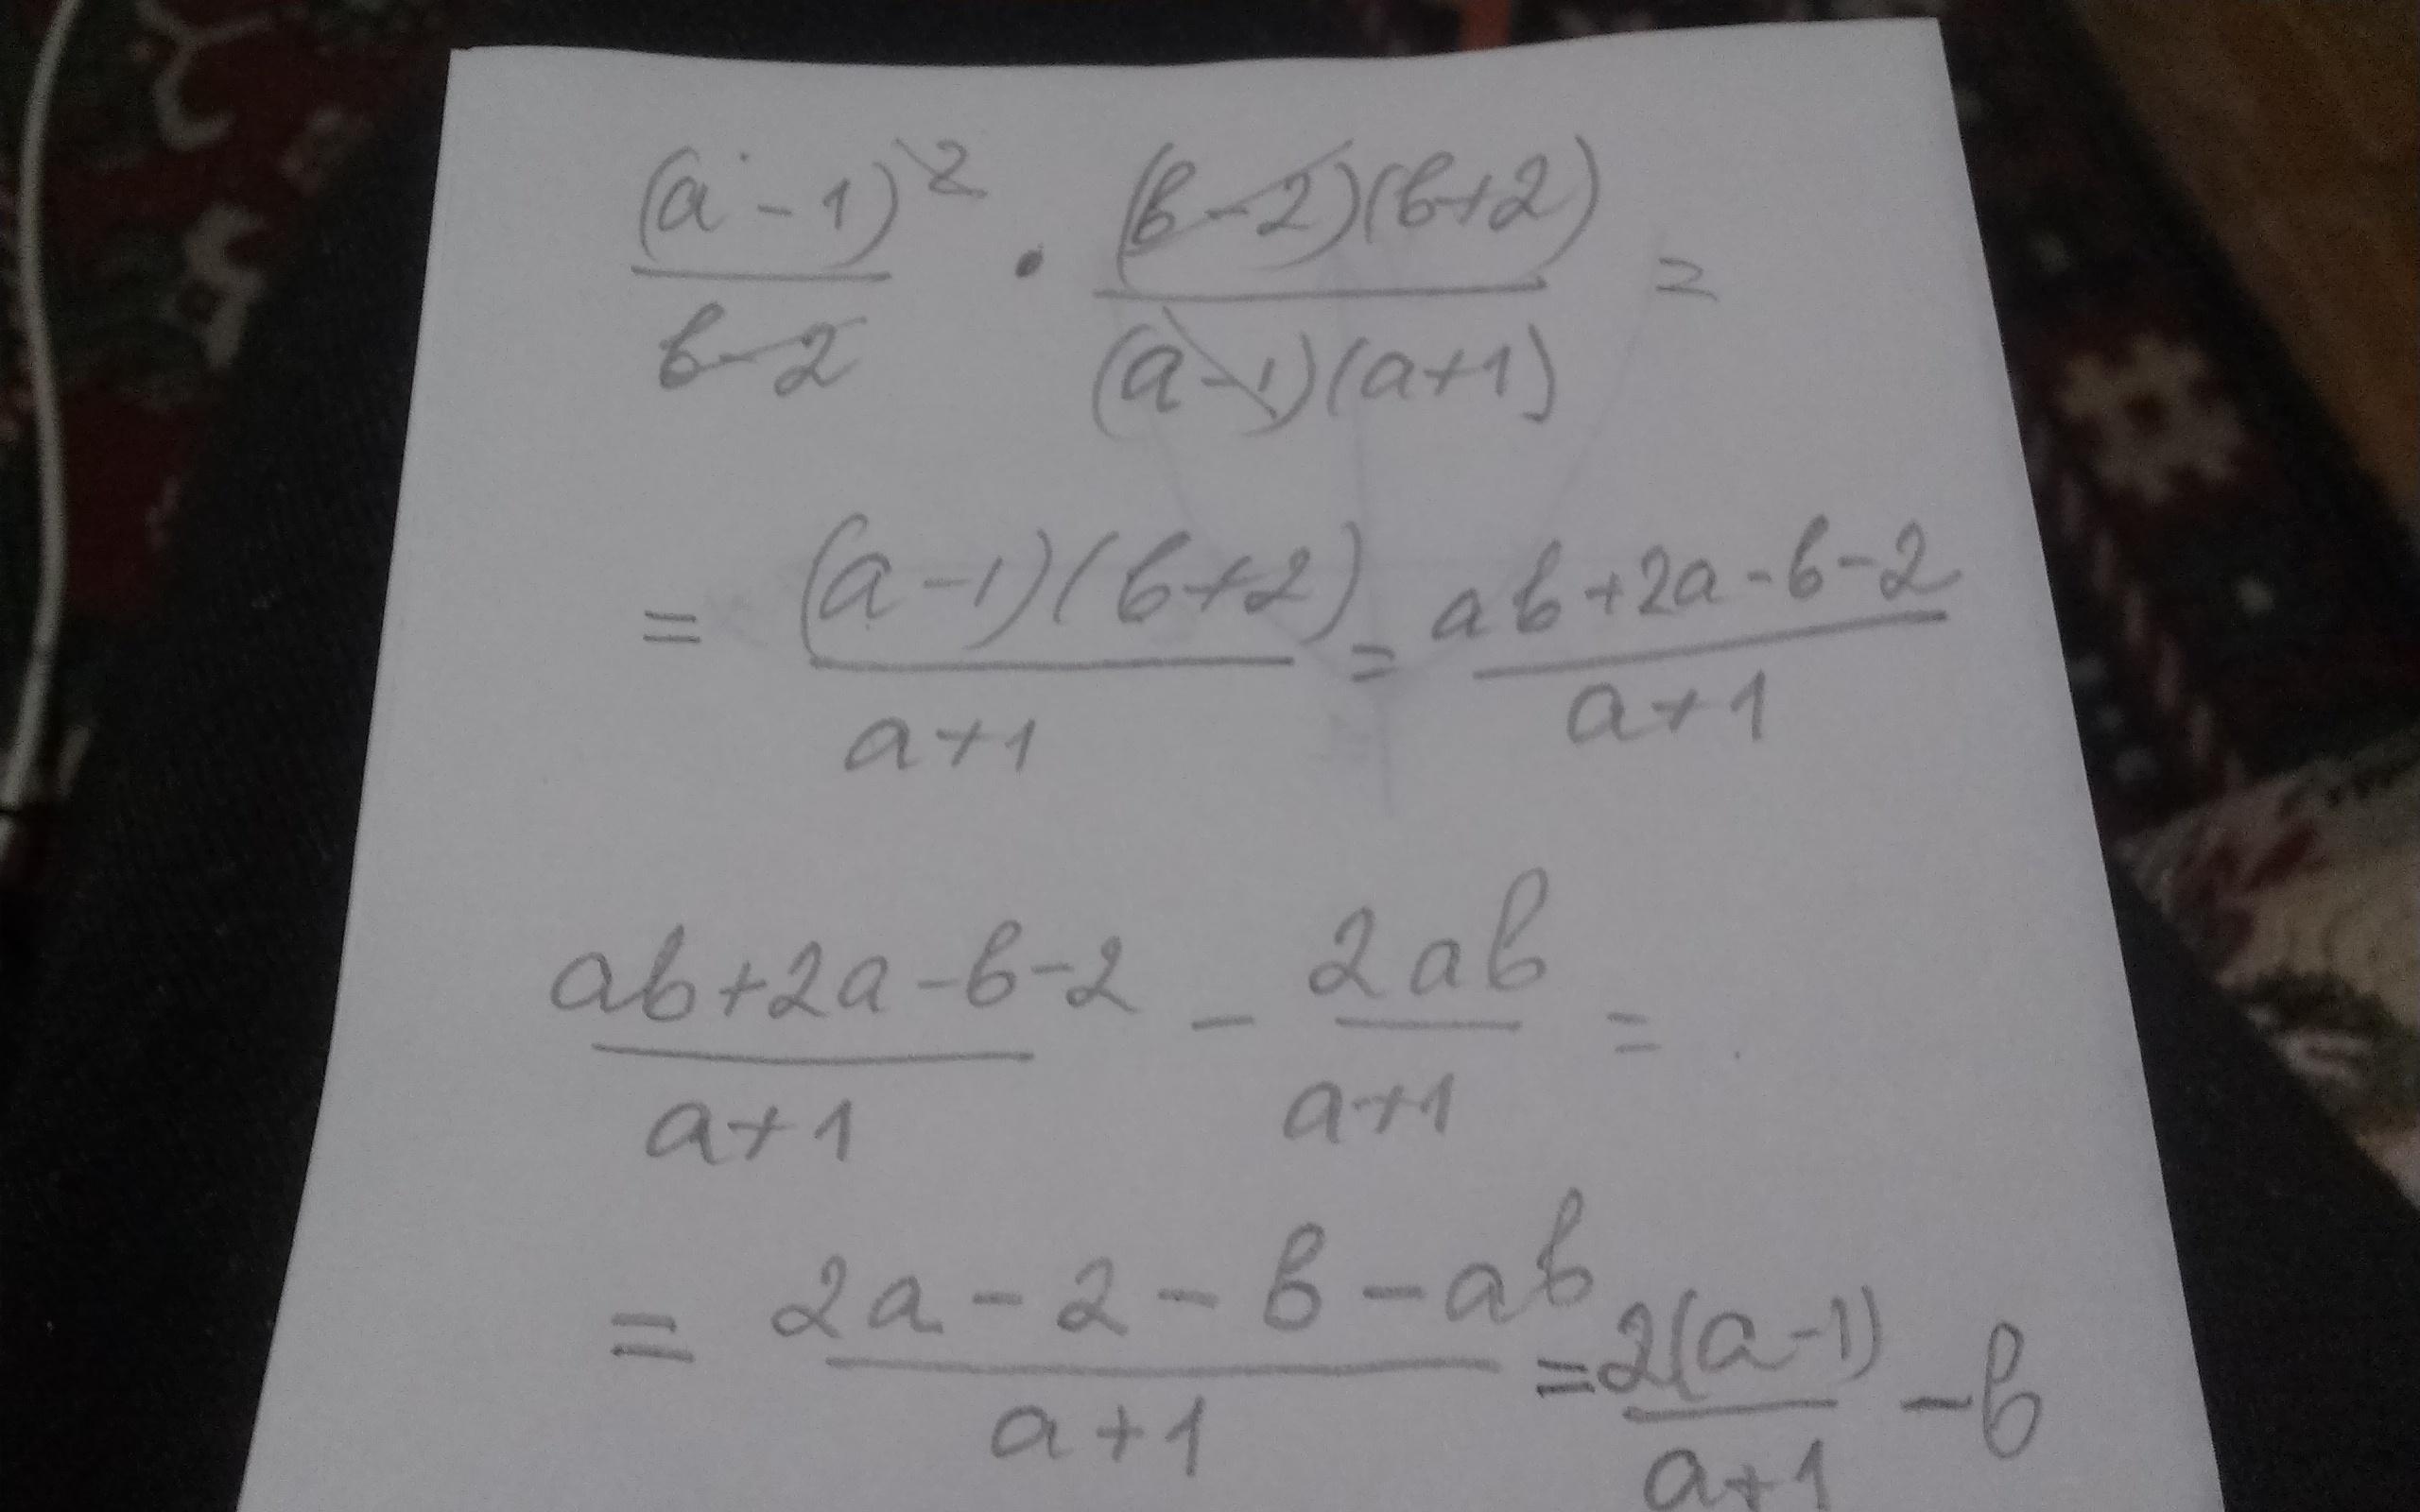 (a-1)²/(b-2) · (b-2)(b+2)/((a-1)(a+1)) =
= (a-1)(b+2)/(a+1) = (ab+2a-b-2)/(a+1)
(ab+2a-b-2)/(a+1) - 2ab/(a+1) =
= (2a-2-b-ab)/(a+1) = 2(a-1)/(a+1) - b